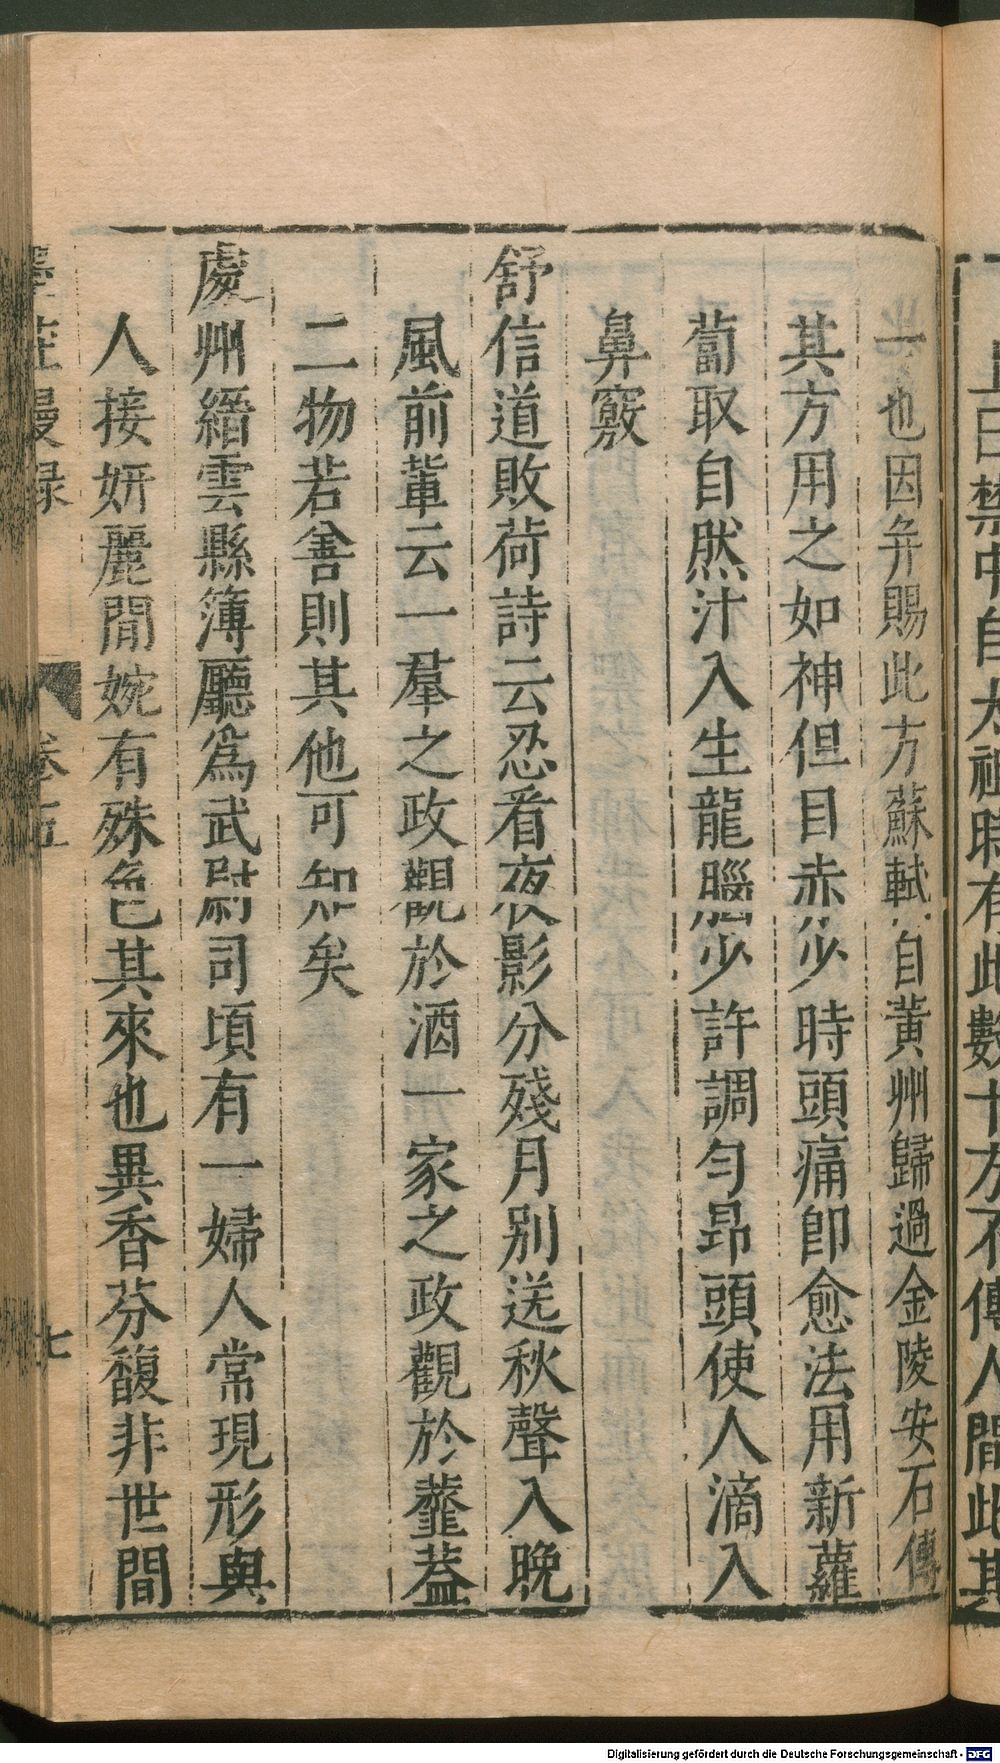 上曰禁中自太祖時有此數十方不傳人間此其
一也因弁賜此方蘇軾自黃州歸過金陵安石傳
其方用之如神但目赤少時頭痛卽愈法用新蘿
蔔取自然汁入生龍腦少許調勻昻頭使人滴入
鼻竅
舒信道敗荷詩云忍看夜影分殘月別送秋聲入晚
風前輩云一羣之政觀於酒一家之政觀於虀葢
二物若善則其他可知矣
處州縉雲縣簿廳爲武尉司頃有一婦人常現形與
人接妍麗閒婉有殊色其來也異香芬馥非世間
墨莊漫錄 卷五 七
Digitalisierung gefördert durch die Deutsche Forschungsgemeinschaft - DFG